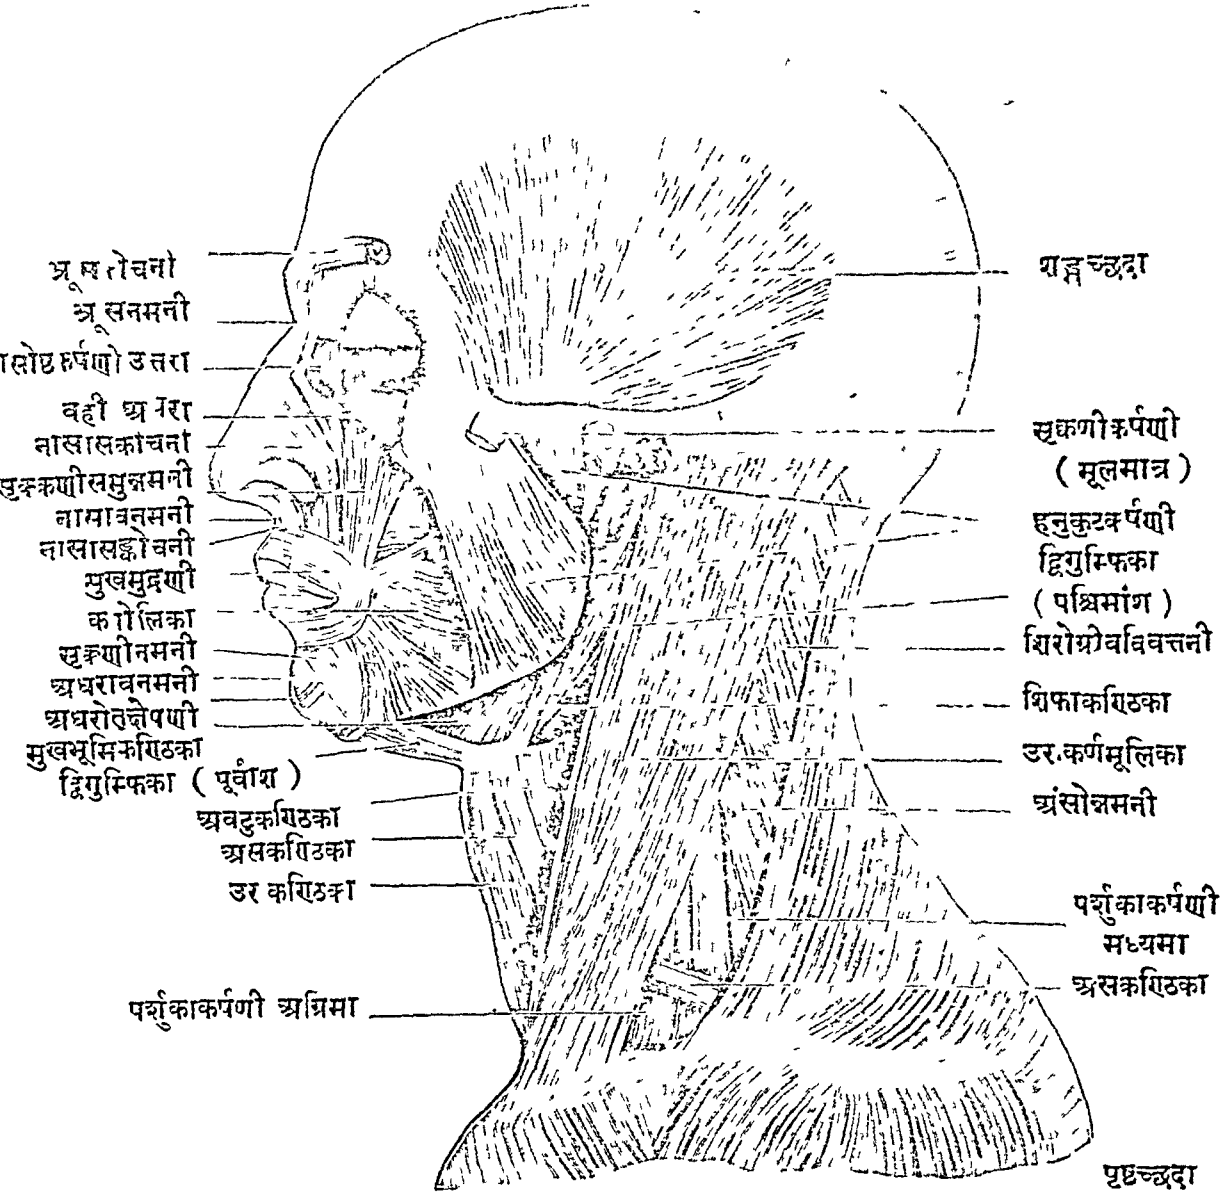 भ्रूसनमनी
नासासंकोचनी
सृक्कणीसमुन्नमनी
नासावनमनी
नासासङ्कोचनी
मुखमुद्रणी
सृक्कणीनमनी
अधरावनमनी
अधरोत्क्षेपणी
मुखभूमिकण्ठिका
द्विगुम्फिका ( पूर्वांश )
अवटुकण्ठिका
असकण्ठिका
उर कण्ठिका
पर्शुकाकर्षणी अग्रिमा
शङ्खच्छदा
सृक्कणीकर्षणी
( मूलमात्र )
हनुकूटकर्षणी
द्विगुम्फिका
( पश्चिमांश )
शिरोग्रीवविवर्त्तनी
शिफाकण्ठिका
उर.कर्णमूलिका
अंसोन्नमनी
पर्शुकाकर्षणी
मध्यमा
असकण्ठिका
पृष्ठच्छदा